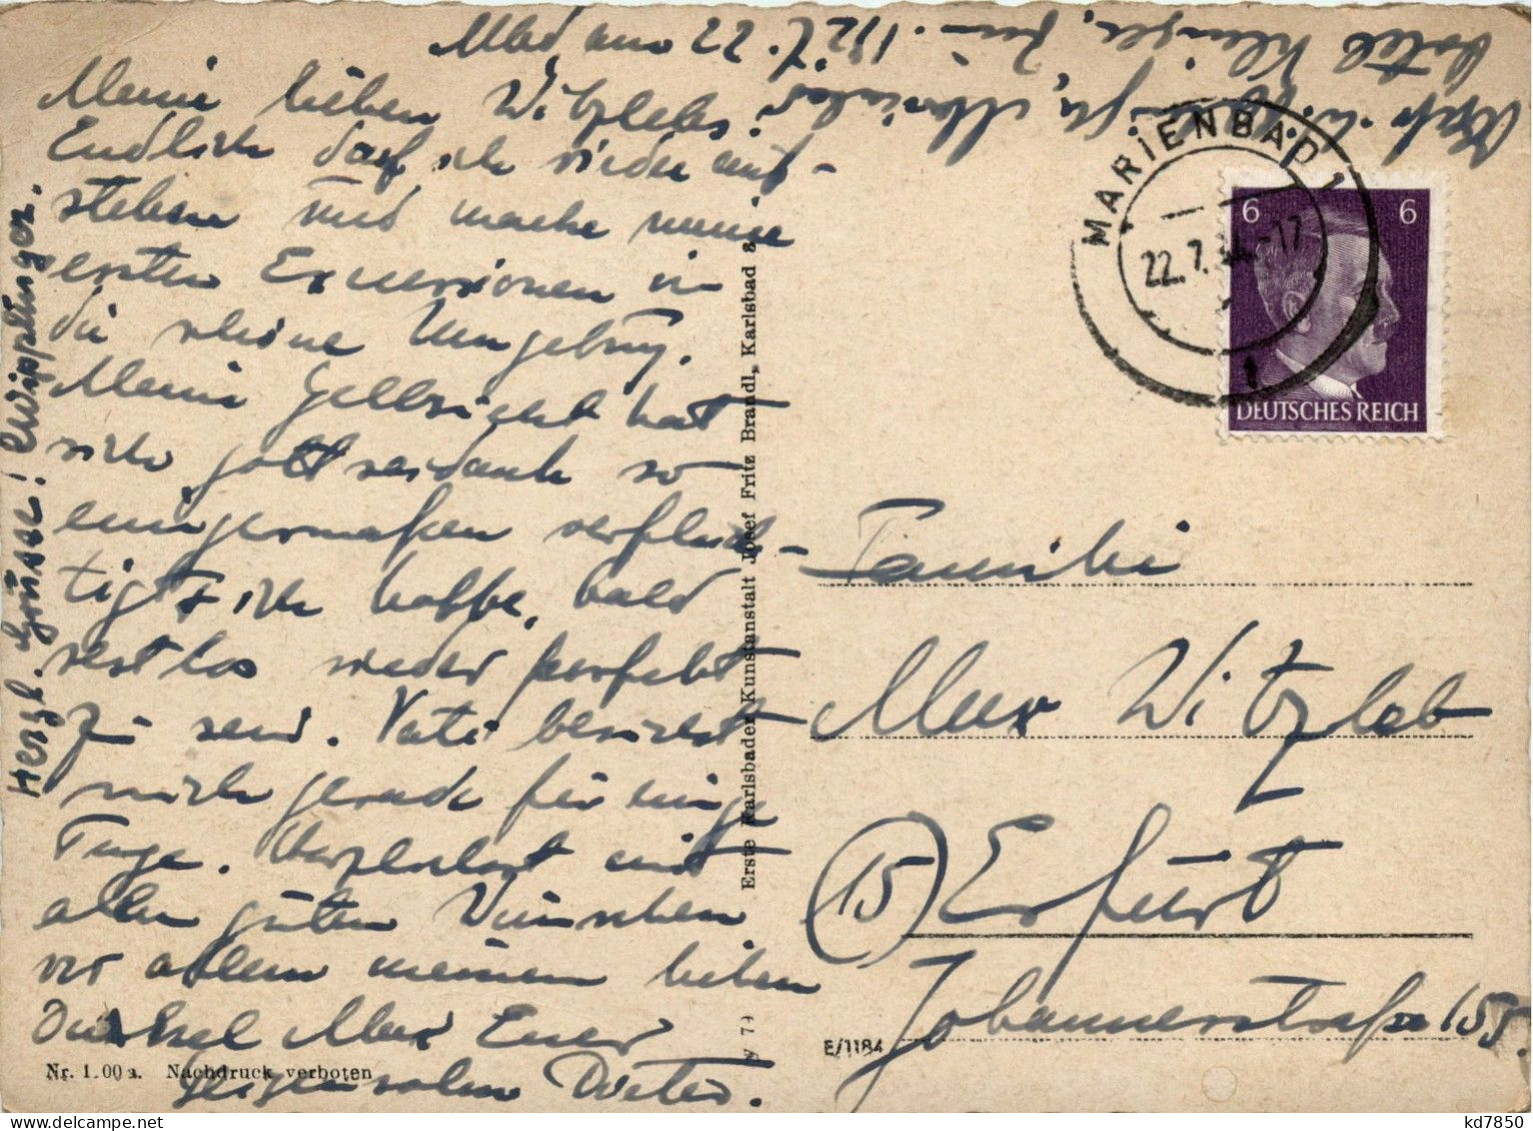 Mbd, am 22. 7.
Meine lieben Witzlebs!
Endlich darf ich wieder auf-
stehen und mache meine
ersten Excursionen in
die schöne Umgebung.
Meine Gelbsucht hat
sich gottseidank so
einigermaßen verflüch-
tigt + ich hoffe, bald
restlos wieder perfekt
zu sein. Vati besucht
mich gerade für einige
Tage. Herzlichst mit
allen guten Wünschen
vor allem meinem lieben
Onkel Max Euer
Dieter.
Herzl. Grüsse!
Nr. 1.00 a. Nachdruck verboten
Erste Karlsbader Kunstanstalt Josef Fritz Brandl, Karlsbad
Hotel Klinger, Zim. 112
MARIENBAD 1
22.7.44.-17
6 6
DEUTSCHES REICH
Familie
Max Witzleb
(15) Erfurt
Johannesstraße 155.
E/1184
kd7850